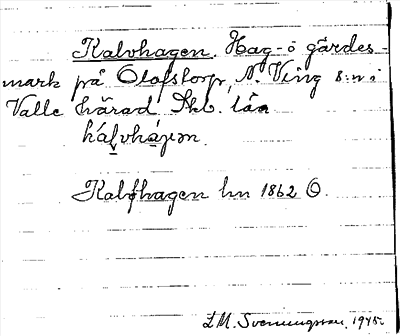 Kalvhagen. Hag- o gärdes-
mark på Olofstorp, N. Ving s:n i
Valle härad Skb. län
kálvháɡən.
Kalfhagen hn 1862 O.
L M. Svenungsson 1945.